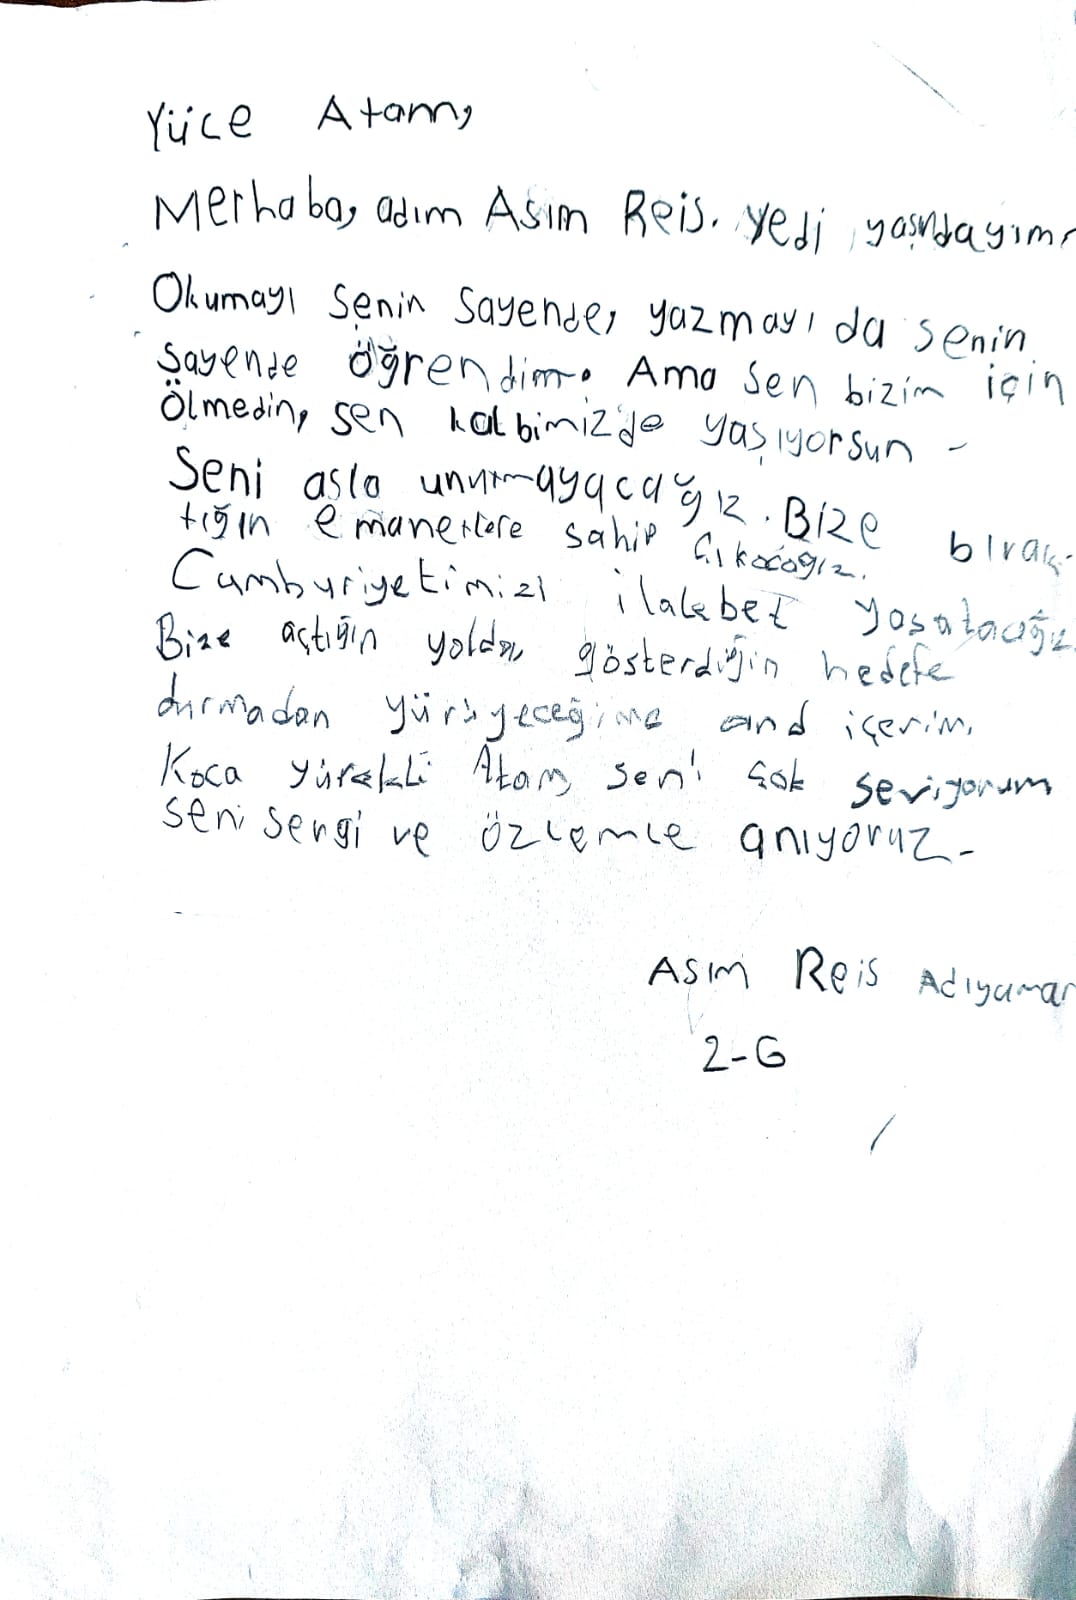 Yüce Atam,
Merhaba, adım Asım Reis. Yedi yaşındayım.
Okumayı senin sayende, yazmayı da senin
sayende öğrendim. Ama sen bizim için
Ölmedin, sen kalbimizde yaşıyorsun -
Seni asla unutmayacağız. Bize bırak-
tığın emanetlere sahip çıkacağız.
Cumhuriyetimizi ilalebet yaşatacağız.
Bize açtığın yolda, gösterdiğin hedefe
durmadan yürüyeceğime and içerim.
Koca yürekli Atam seni çok seviyorum
seni sevgi ve özlemle anıyoruz-
Asım Reis Adıyaman
2-G